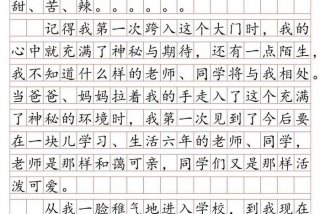 甜、苦、辣。。。。。。
记得我第一次跨入这个大门时，我的
心中就充满了神秘与期待，还有一点陌生，
我不知道什么样的老师、同学将与我相处。
当爸爸、妈妈拉着我的手走入了这个充满
了神秘的环境时，我第一次见到了今后要
在一块儿学习、生活六年的老师、同学，
老师是那样和蔼可亲，同学们又是那样活
泼可爱。
从我一脸稚气地进入学校，到我现在